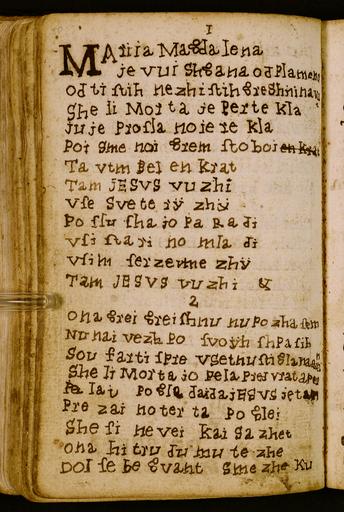 1
MAriia Magda lena
je vui shgana od Plamena
od ti stih nezhistih greshnina
She li Morta je Perte kla
ju je Prosla noie ie kla
Poi sme noi grem sto boi en krat
Ta vtm Bel en Krat
Tam JESVS vuzhi
Vse Svete ry zhy
Po slu sha jo Pa Ra di
Vsi sta ri no mla di
Vsim serzevme zhy
Tam JESVS vuzhi &
2
Ona grei greishnu nu Po zha sem
Nu nai vezh Po svoyh shPasih
Sou farti sPre vsethu sti gla na
She li Morta jo Pela Prei vrata
la iai Po gla daida JESVS je tam
Pre zai no ter ta Po glei
She si ne vei Kai Sa zhet
Ona hi tru du mu te zhe
Dol se be gvant Sme zhe Ku